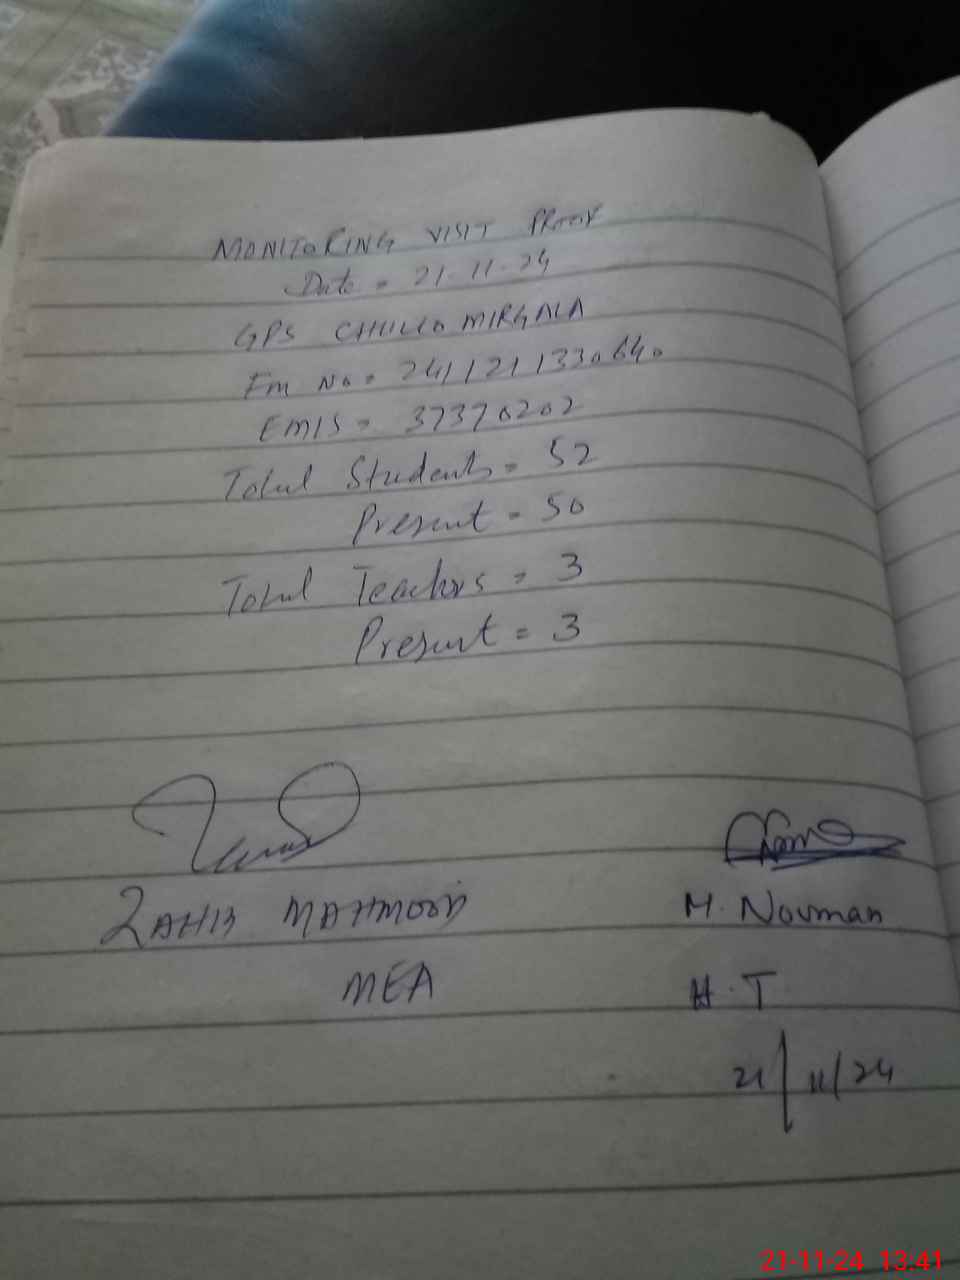 MONITORING VISIT PROOF
Date = 21-11-24
GPS CHILLO MIRGALA
Em No = 241121133064
EMIS = 37370202
Total Students = 52
Present = 50
Total Teachers = 3
Present = 3
ZAHIB MAHMOOD
M. Nouman
MEA
H.T
21/11/24
21-11-24 13:41